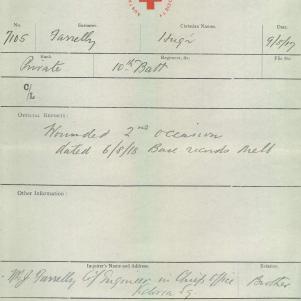 No. Surname. Christian Names. Date.
7105 Farrelly Hugh 9/5/17
Rank Regiment, &c. File No.
Private 10th Batt
C/
OFFICIAL REPORTS:
Wounded 2nd occasion
dated 6/5/18 Base records Melb
Other Information:
Inquirer's Name and Address. Relation.
M. J. Farrelly C/ Engineer in Chiefs Office Brother